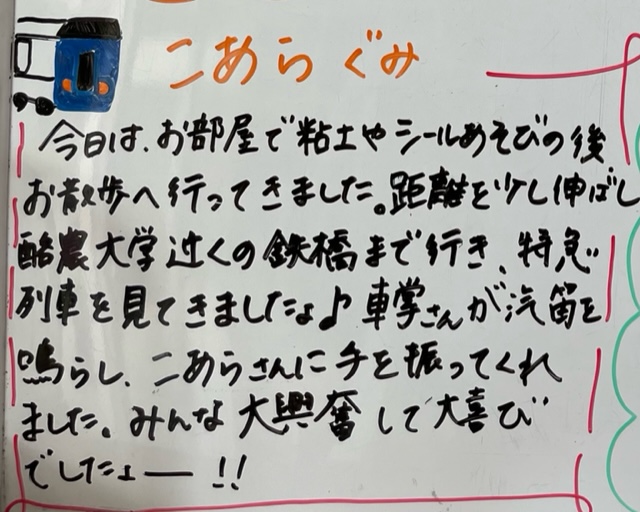 こあらぐみ
今日は、お部屋で粘土やシールあそびの後
お散歩へ行ってきました。距離を少し伸ばし
酪農大学近くの鉄橋まで行き、特急
列車を見てきましたよ♪車掌さんが汽笛を
鳴らし、こあらさんに手を振ってくれ
ました。みんな大興奮して大喜び
でしたよー!!